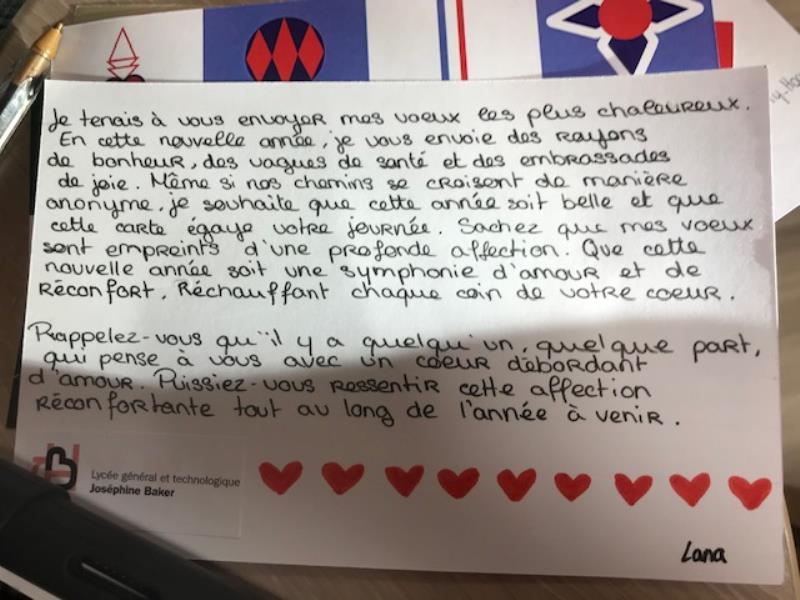 Je tenais à vous envoyer mes voeux les plus chaleureux.
En cette nouvelle année, je vous envoie des rayons
de bonheur, des vagues de santé et des embrassades
de joie. Même si nos chemins se croisent de manière
anonyme, je souhaite que cette année soit belle et que
cette carte égaye votre journée. Sachez que mes voeux
sont empreints d'une profonde affection. Que cette
nouvelle année soit une symphonie d'amour et de
réconfort. Réchauffant chaque coin de votre coeur.
Rappelez-vous qu'il y a quelqu'un, quelque part,
qui pense à vous avec un coeur débordant
d'amour. Puissiez-vous ressentir cette affection
réconfortante tout au long de l'année à venir.
Lycée général et technologique
Joséphine Baker
Lana